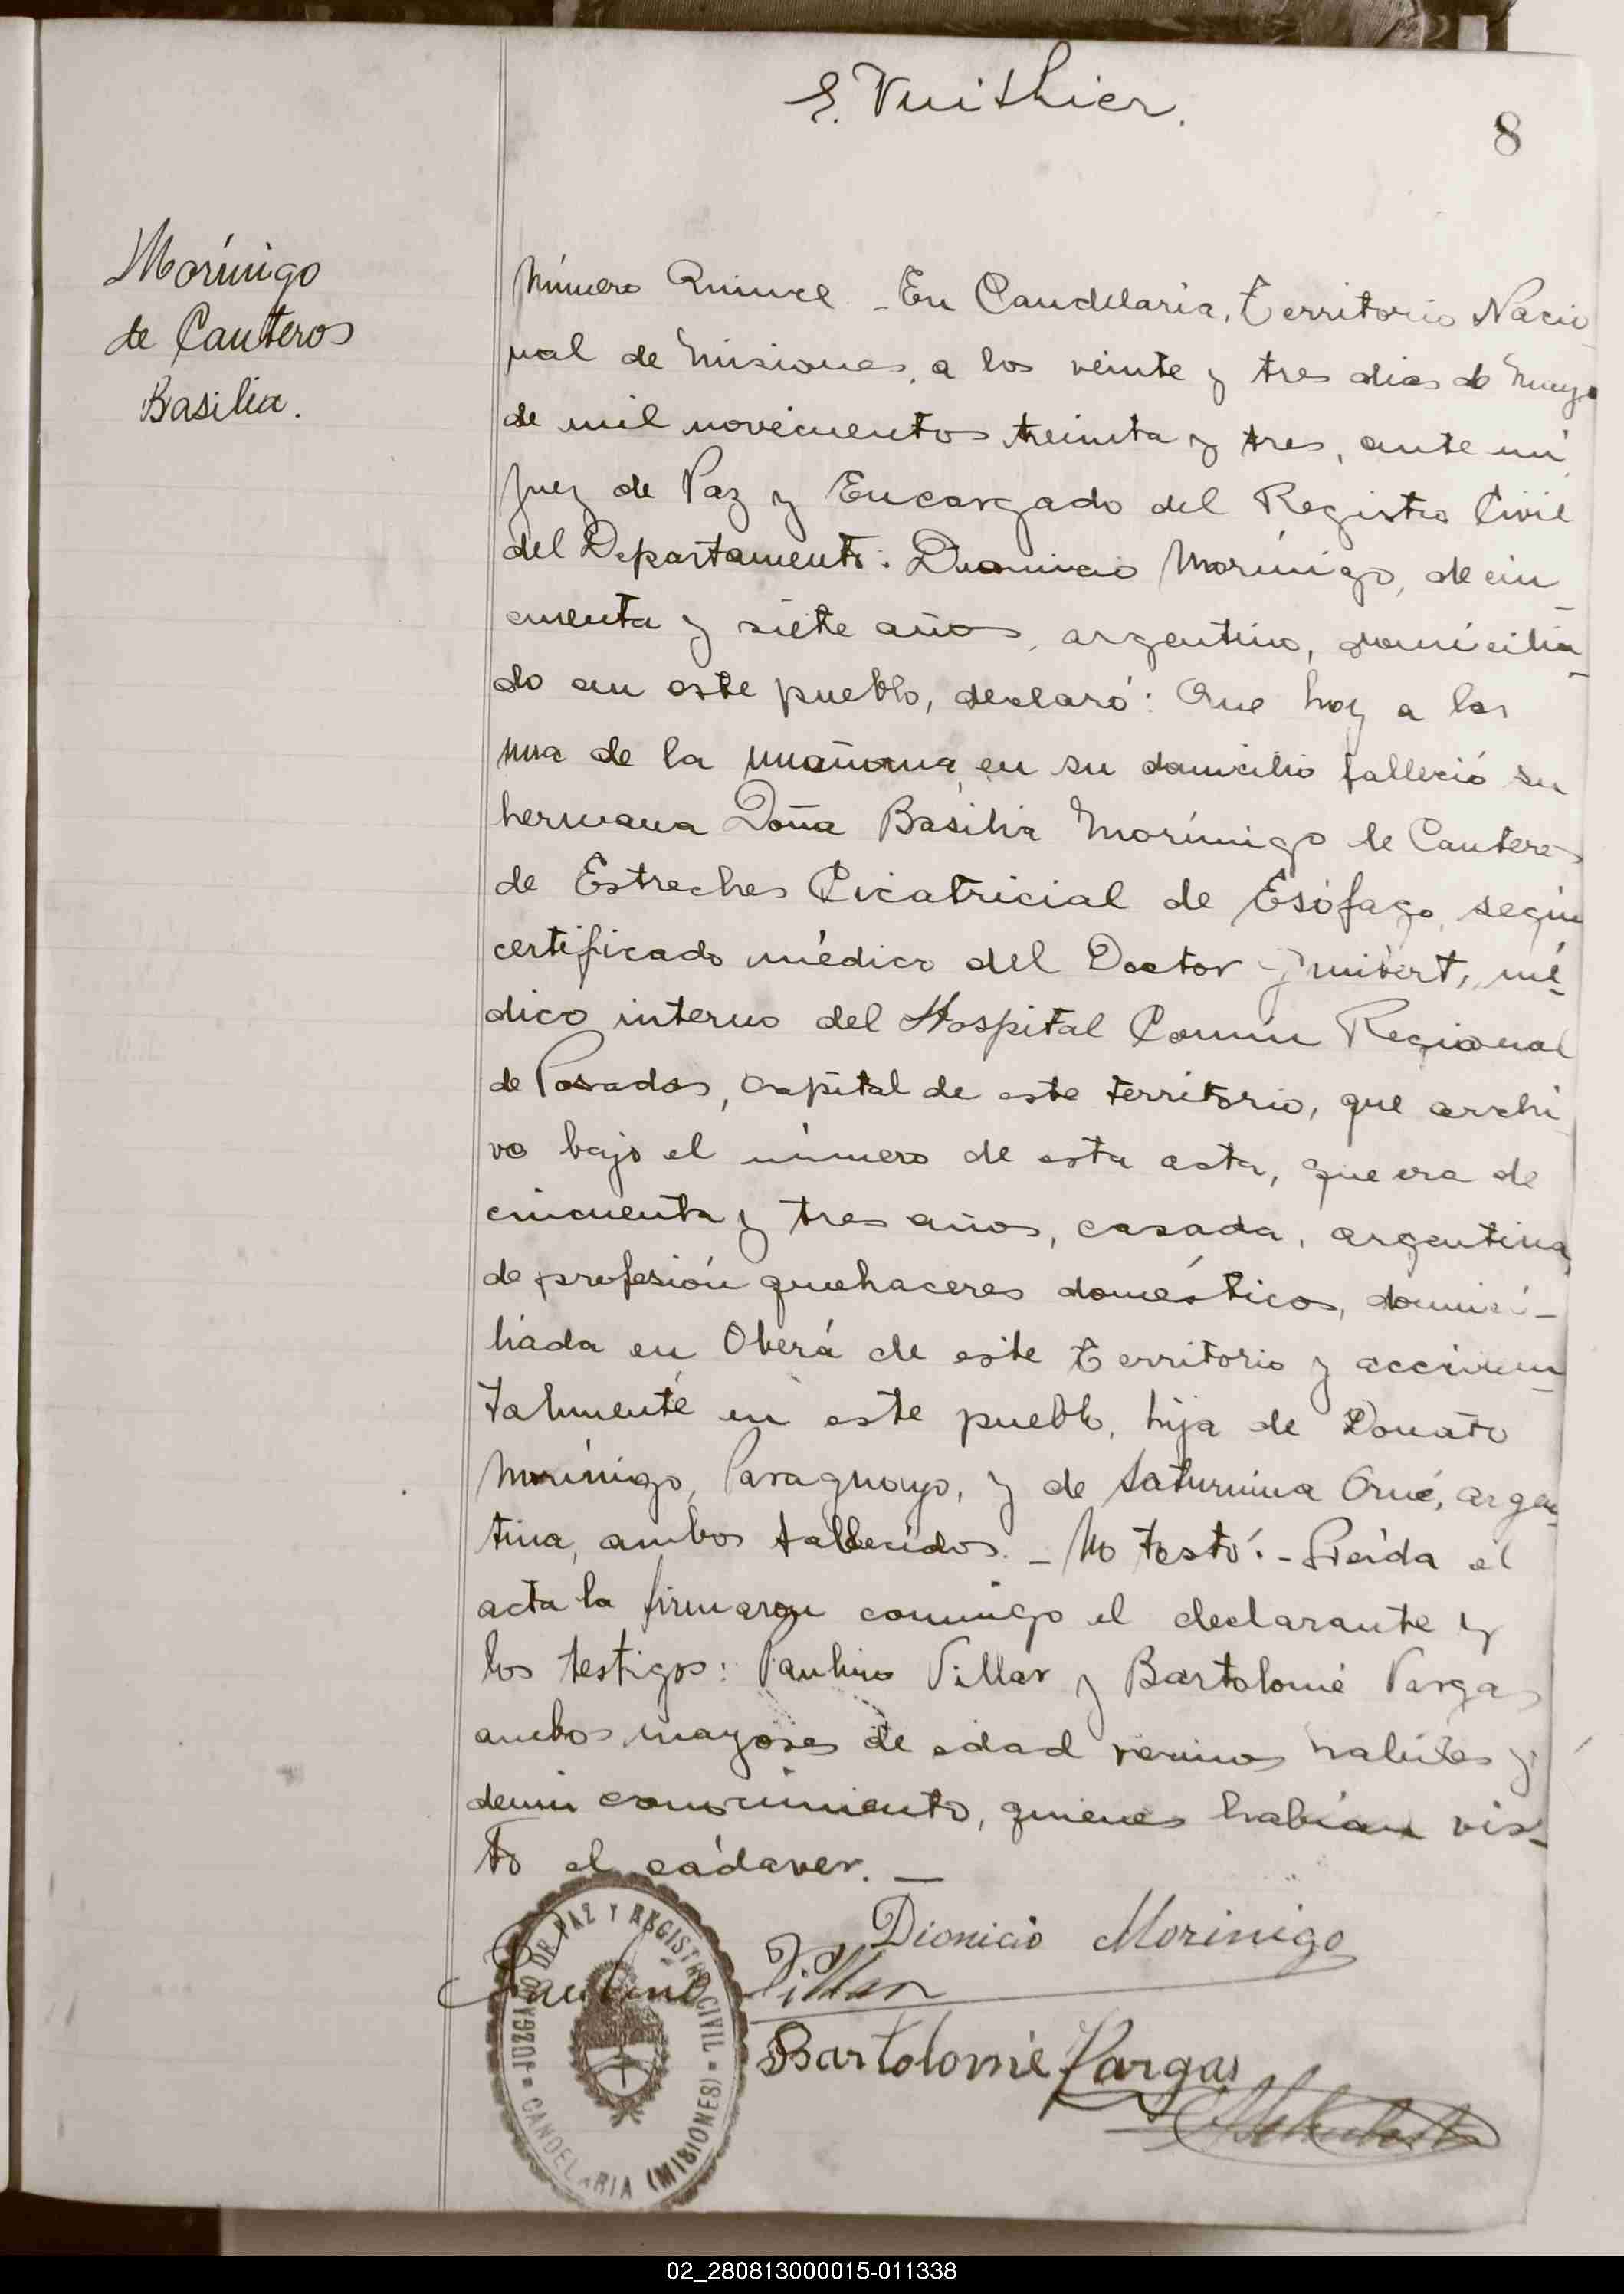 E. Vuithier.
8
Morínigo
de Canteros
Basilia.
Número Quince - En Candelaria, Territorio Nacio
nal de Misiones, a los veinte y tres dias de Mayo
de mil novecientos treinta y tres, ante mi
Juez de Paz y Encargado del Registro Civil
del Departamento: Dionicio Morínigo, de cin_
cuenta y siete años, argentino, domicilia_
do en este pueblo, declaró: Que hoy a las
una de la mañana, en su domicilio falleció su
hermana Doña Basilia Morínigo de Canteros
de Estreches Cicatricial de Esófago, según
certificado médico del Doctor mé_
dico interno del Hospital Común Regional
de Posadas, capital de este territorio, que archi
vo bajo el número de esta acta, que era de
cincuenta y tres años, casada, argentina,
de profesión quehaceres domésticos, domici-
liada en Oberá de este Territorio y acciden_
talmente en este pueblo, hija de Donato
Morínigo, Paraguayo, y de Saturnina Orué, argen_
tina, ambos fallecidos. - No testó. - Leída el
acta la firmaron conmigo el declarante y
los testigos: Paulino Villar y Bartolomé Vargas
ambos mayores de edad vecinos habiles y
de mi conocimiento, quienes habian vis_
to el cádaver. _
Dionicio Morinigo
Paulino Villar
Bartolomé Vargas
JUZGADO DE PAZ Y REGISTRO CIVIL
CANDELARIA (MISIONES)
02_280813000015-011338